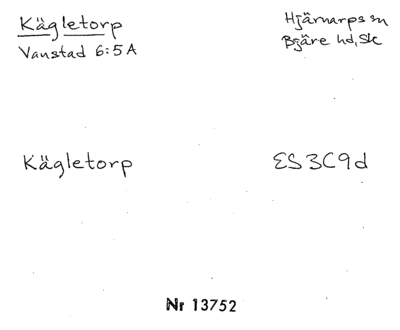 Kägletorp
Vanstad 6:5A
Hjärnarps sn
Bjäre hd, Sk
Kägletorp
ES3C9d
Nr 13752